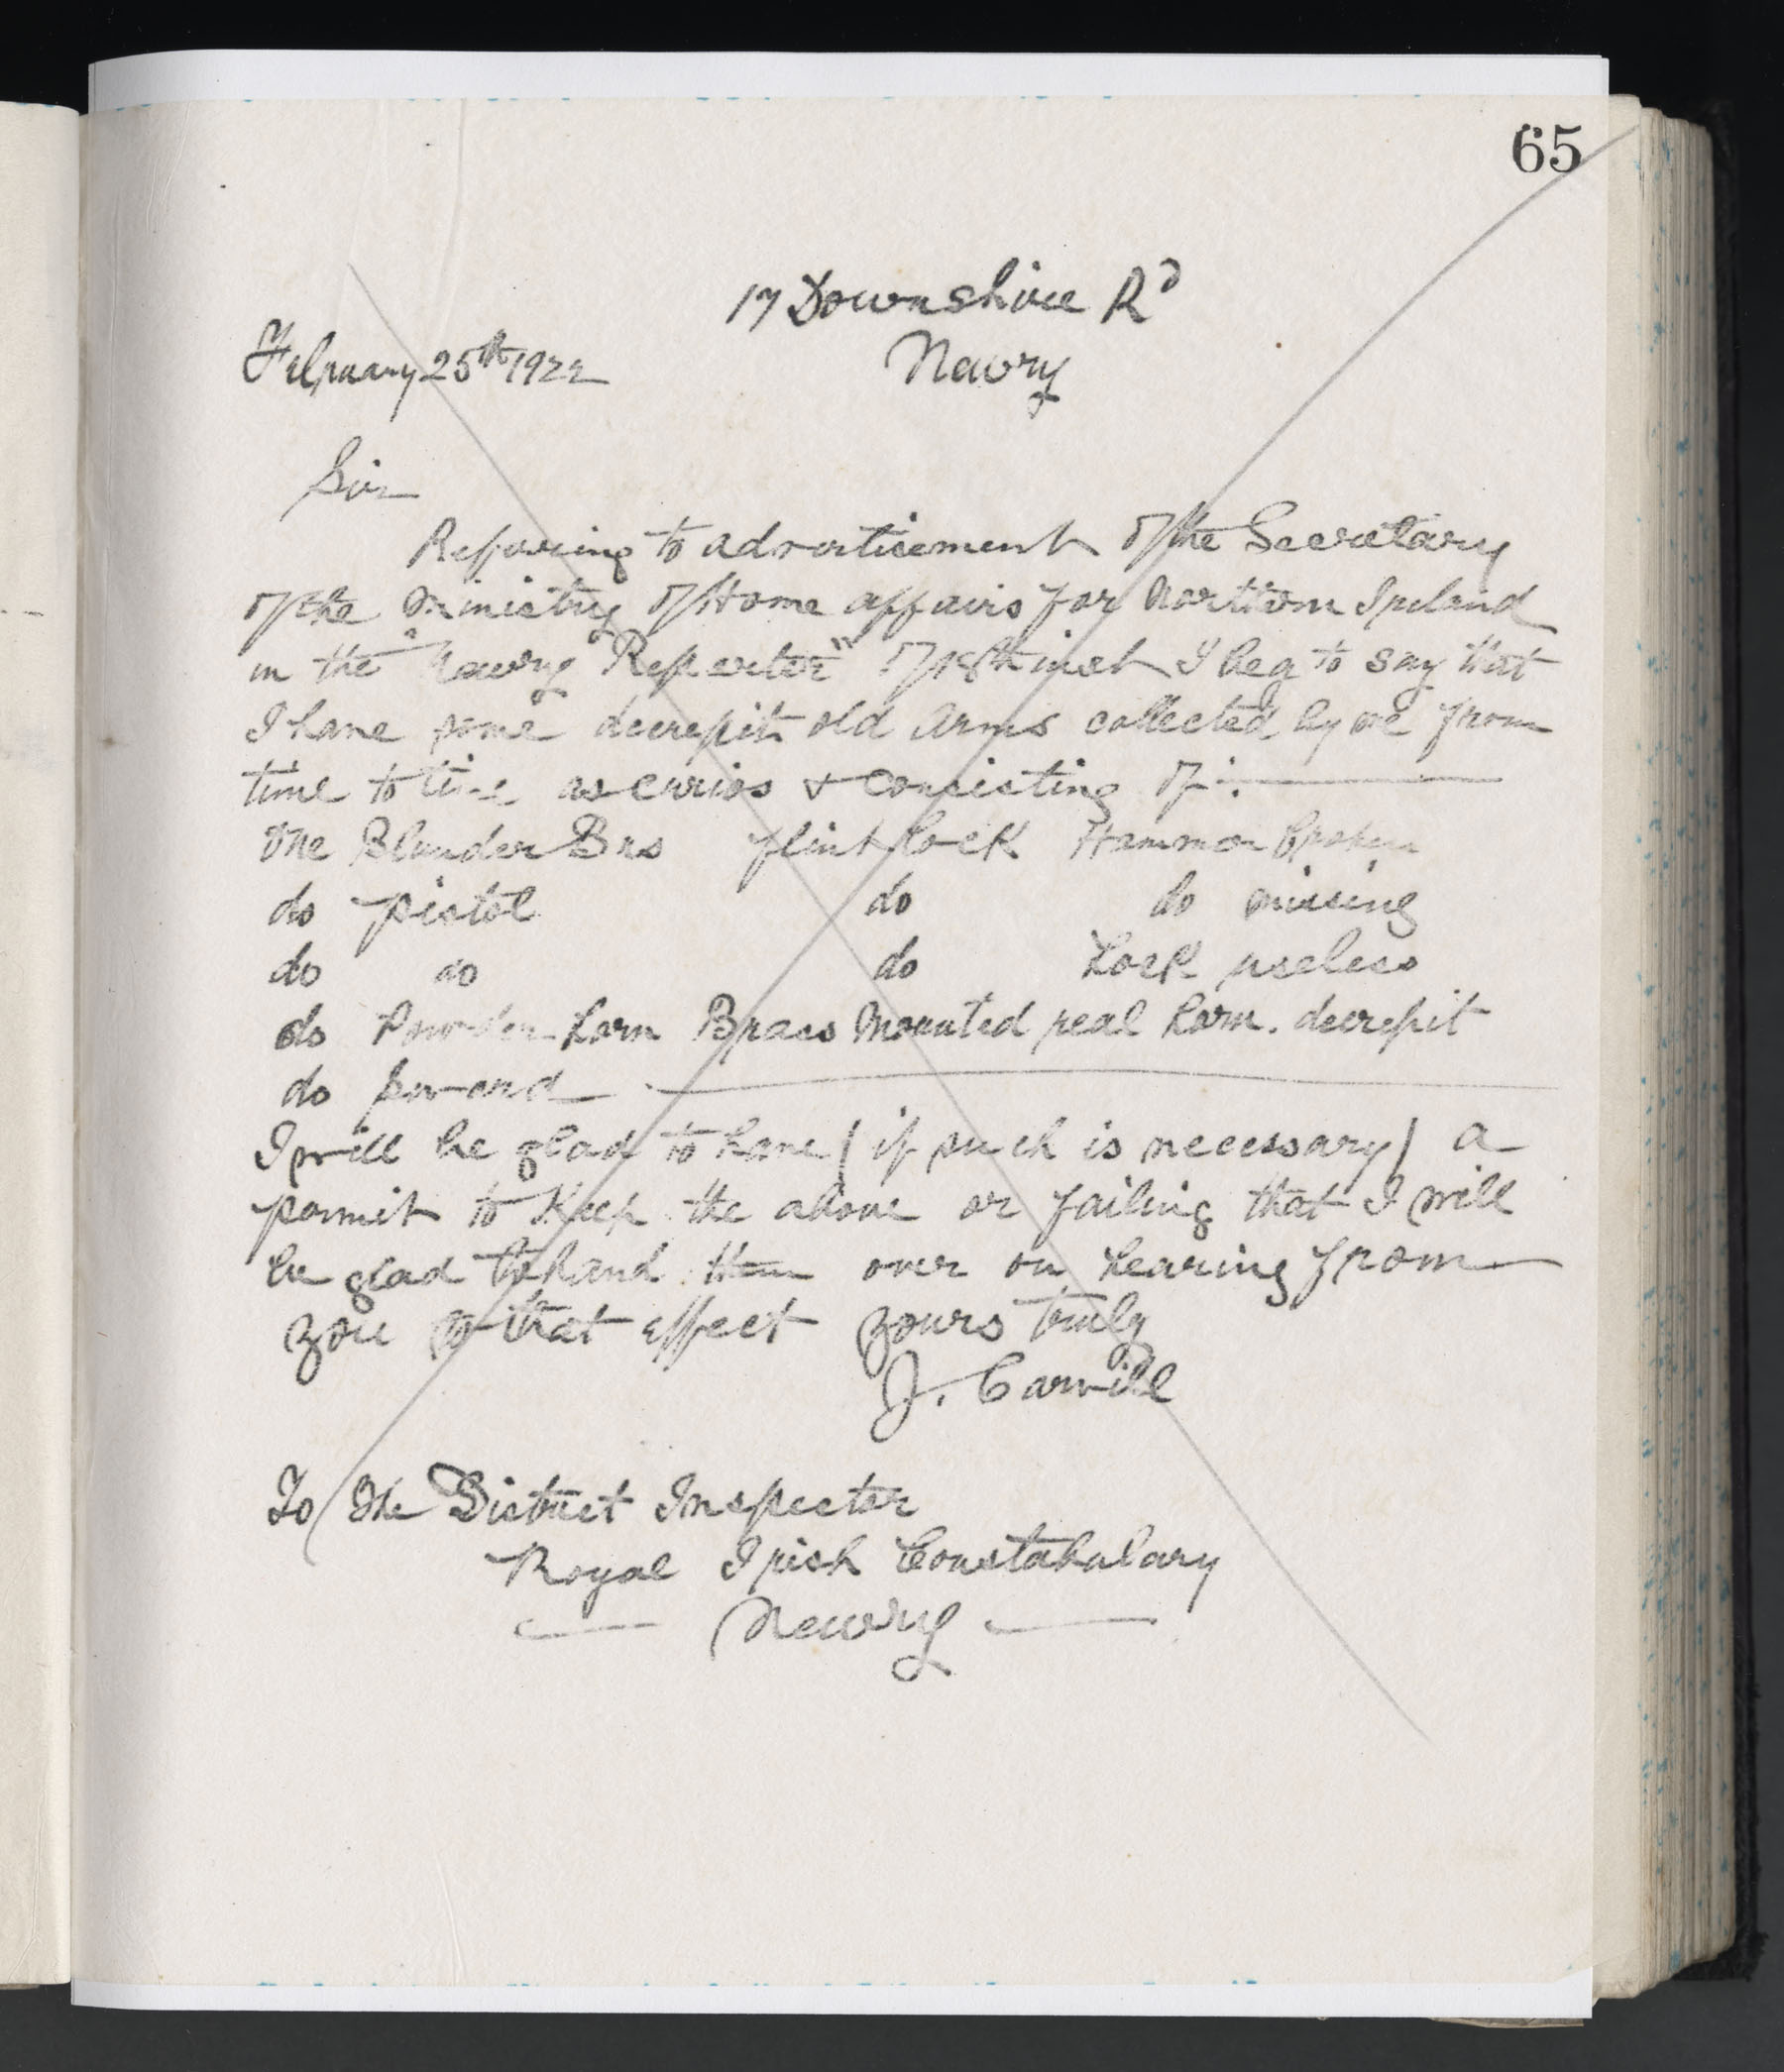 65
17 Downshire Rd
February 25th 1922
Newry
Sir
Referring to advertisement of the Secretary
of the Ministry of Home affairs for Northern Ireland
in the "Newry Reporter" of 18th inst I beg to say that
I have some decrepit old arms collected by me from
time to time as curios & consisting of :
One Blunder Bus flint lock Hammer broken
do pistol do do missing
do do do Lock useless
do Powder horn Brass Mounted real horn. decrepit
do Sword
I will be glad to have ( if such is necessary ) a
permit to Keep the above or failing that I will
be glad to hand them over on hearing from
you to that effect yours truly
J. Carvill
To The District Inspector
Royal Irish Constabulary
Newry